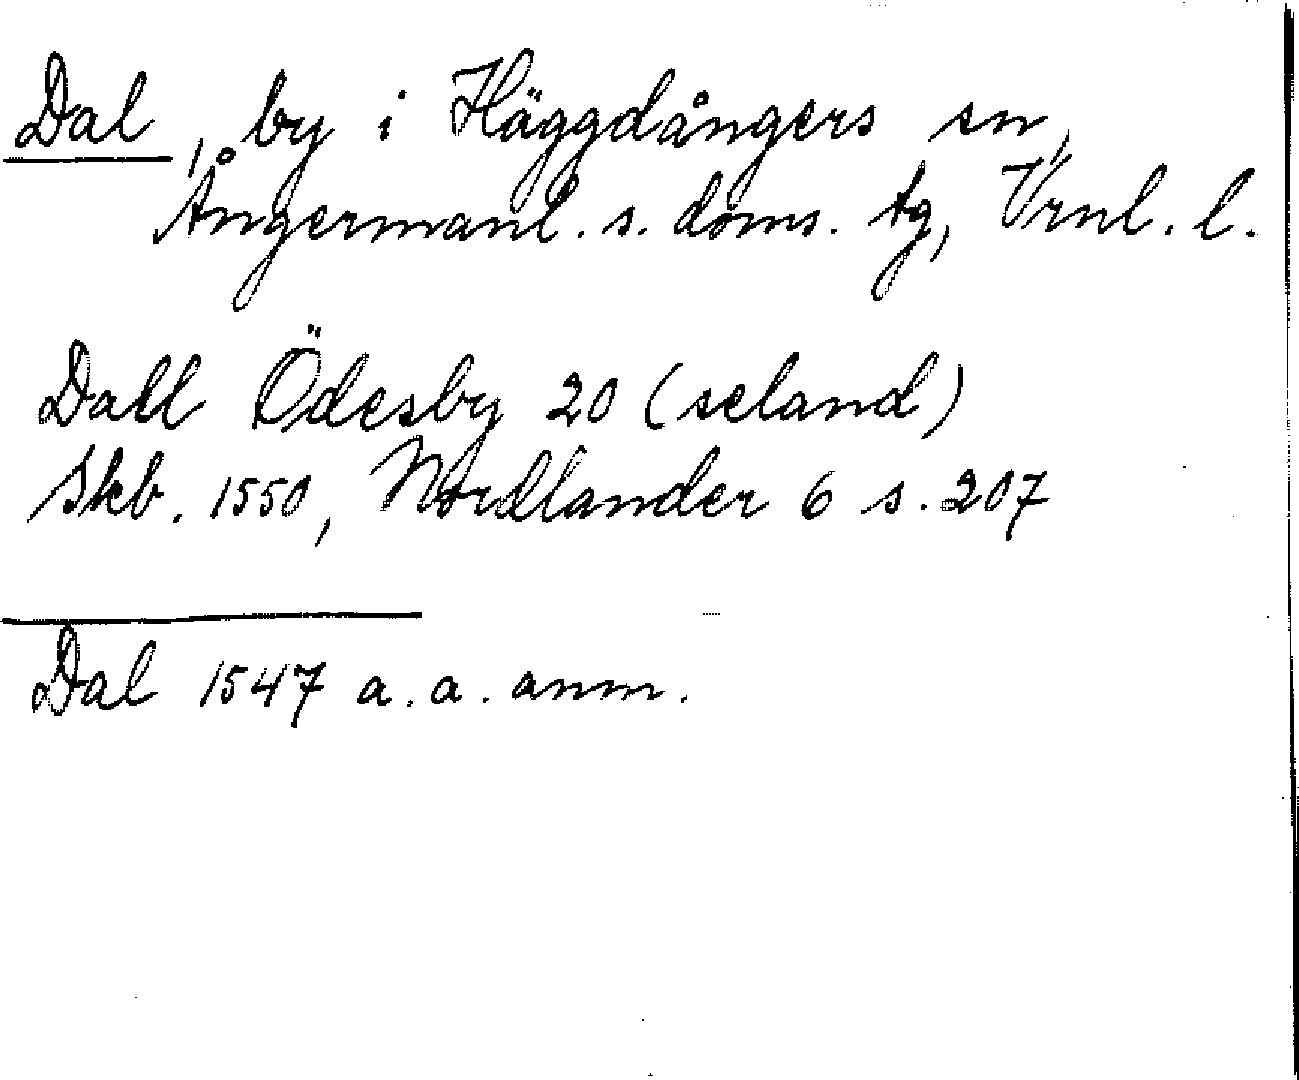 Dal, by i Häggdångers sn,
Ångermanl. s. doms. tg, Vrnl. l.
Dall Ödesby 20 (seland)
Skb. 1550, Nordlander 6 s. 207
Dal 1547 a. a. anm.